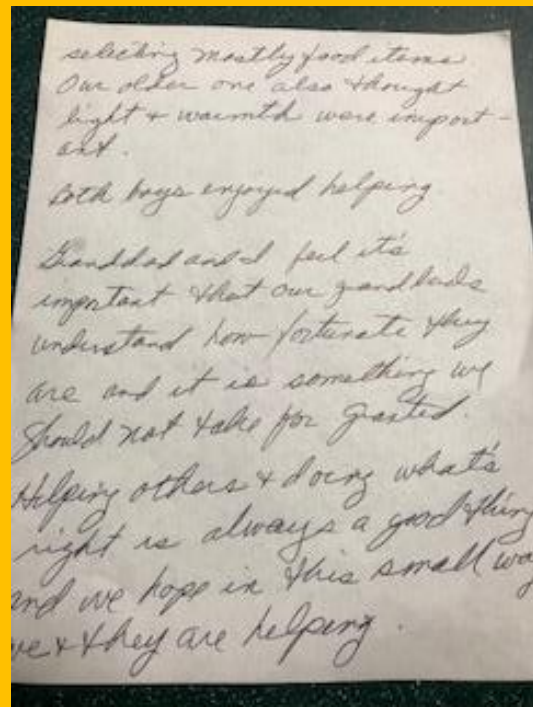 selecting mostly food items.
Our older one also thought
light + warmth were import-
ant.
Both boys enjoyed helping
Granddad and I feel it's
important that our grandkids
understand how fortunate they
are and it is something we
should not take for granted.
Helping others + doing what's
right is always a good thing
and we hope in this small way
we + they are helping.